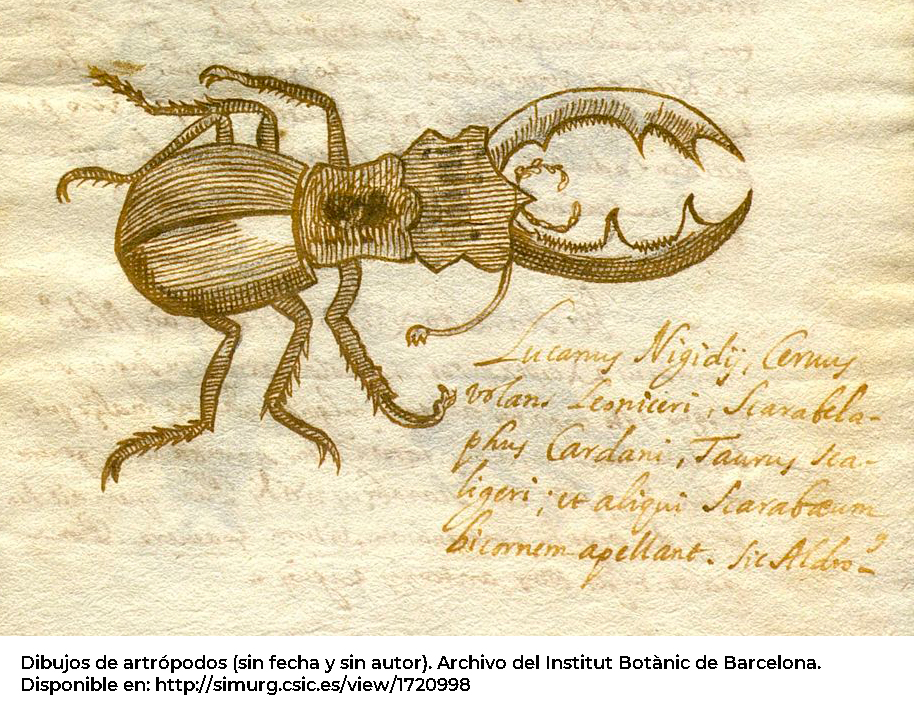 Lucanus Nigidij, Ceruus
volans Leoniceri, Scarabela-
phus Cardani, Taurus sca-
ligeri; et aliqui Scarabæum
bicornem apellant. Sic Aldro-
Dibujos de artrópodos (sin fecha y sin autor). Archivo del Institut Botànic de Barcelona.
Disponible en: http://simurg.csic.es/view/1720998